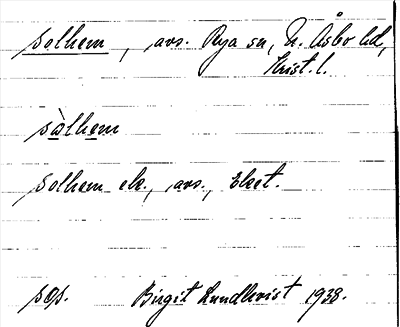 Solhem, avs. Rya sn, N. Åsbo hd,
Krist. l.
sòlhem
Solhem ek., avs., Eket.
sgs. Birgit Lundkvist 1938.